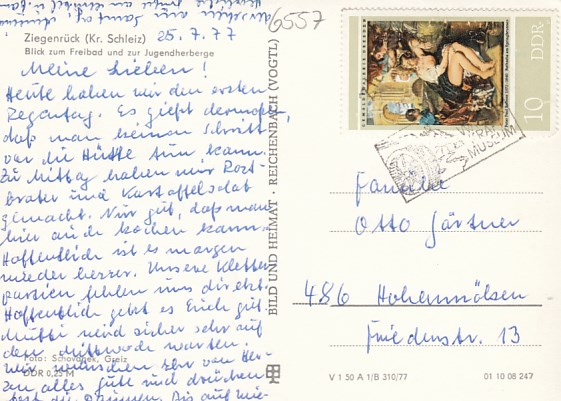 6557
Ziegenrück (Kr. Schleiz) 25.7.77
Blick zum Freibad und zur Jugendherberge
Meine Lieben!
Heute haben wir den ersten
Regentag. Es gießt dermaßen,
daß man keinen Schritt
vor die Hütte tun kann.
Zu Mittag haben wir Rost-
brater und Kartoffelsalat
gemacht. Nur gut, daß man
hier auch kochen kann.
Hoffentlich ist es morgen
wieder besser. Unsere Kletter-
partien fehlen uns direkt.
Hoffentlich geht es Euch gut.
Mutti wird sicher sehr auf
den Mittwoch warten.
Wir wünschen Ihr von Her-
zen alles gute und drücken
fest die Daumen. Bis auf wie-
Foto: Schovanek, Greiz
DDR 0,25 M
BILD UND HEIMAT · REICHENBACH (VOGTL)
10 DDR
MUSEUM
Familie
Otto Gärtner
486 Hohenmölsen
Friedenstr. 13
V 1 50 A 1/B 310/77
01 10 08 247